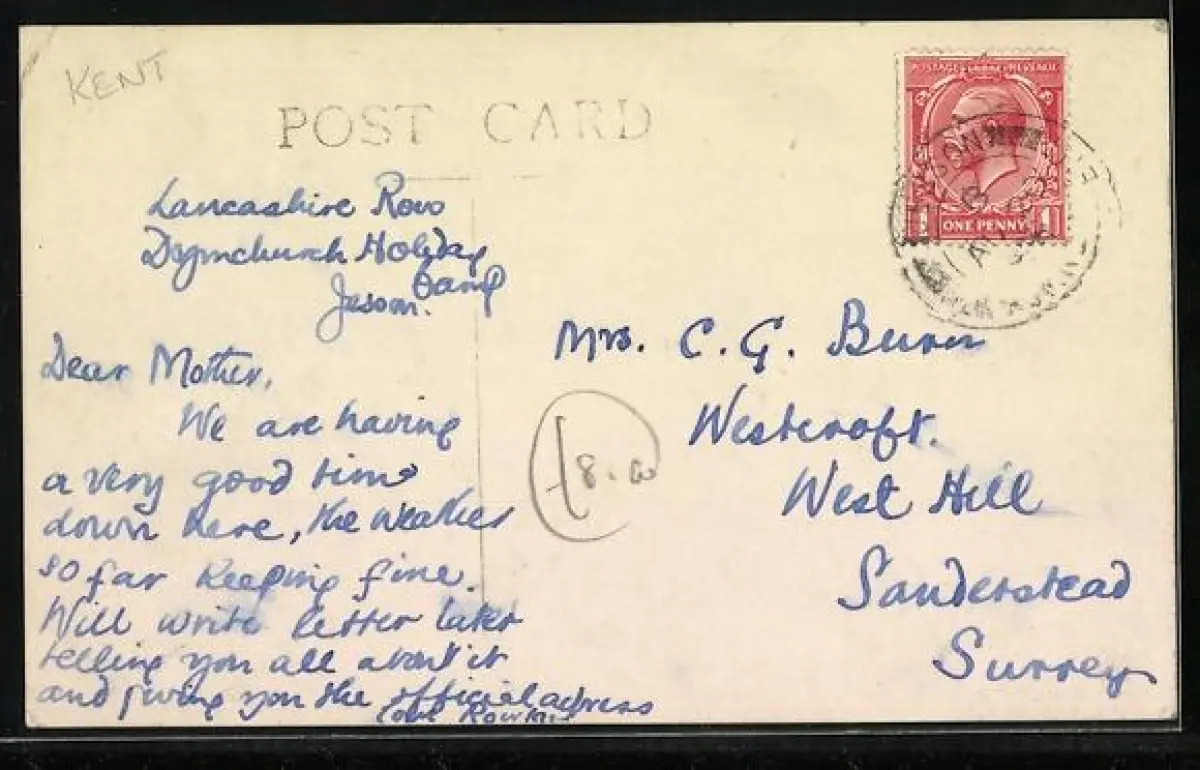 KENT
POST CARD
POSTAGE REVENUE
ONE PENNY
1 1
Lancashire Row
Dymchurch Holiday
Camp
Jesson.
Dear Mother,
We are having
a very good time
down here, the weather
so far keeping fine.
Will write letter later
telling you all about it
and giving you the official adress
love
Mrs. C. G. Burn
Westcroft.
West Hill
Sanderstead
Surrey